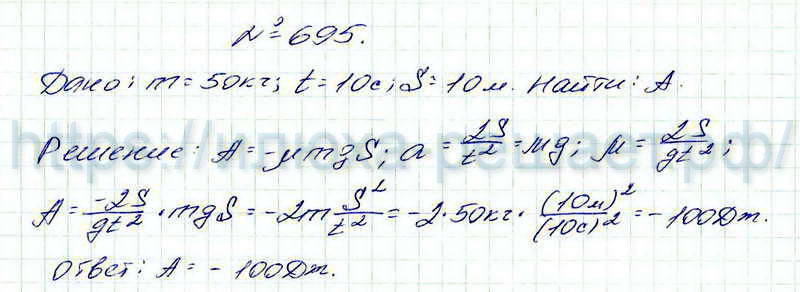 №695.
Дано: m = 50кг; t = 10с; S = 10м. Найти: A.
https://илюха-решает.рф/
Решение: A = -μmgS; a = 2S/t² = μg; μ = 2S/gt²;
A = -2S/gt² · mgS = -2m S²/t² = -2·50кг · (10м)²/(10с)² = -100Дж.
Ответ: A = -100Дж.